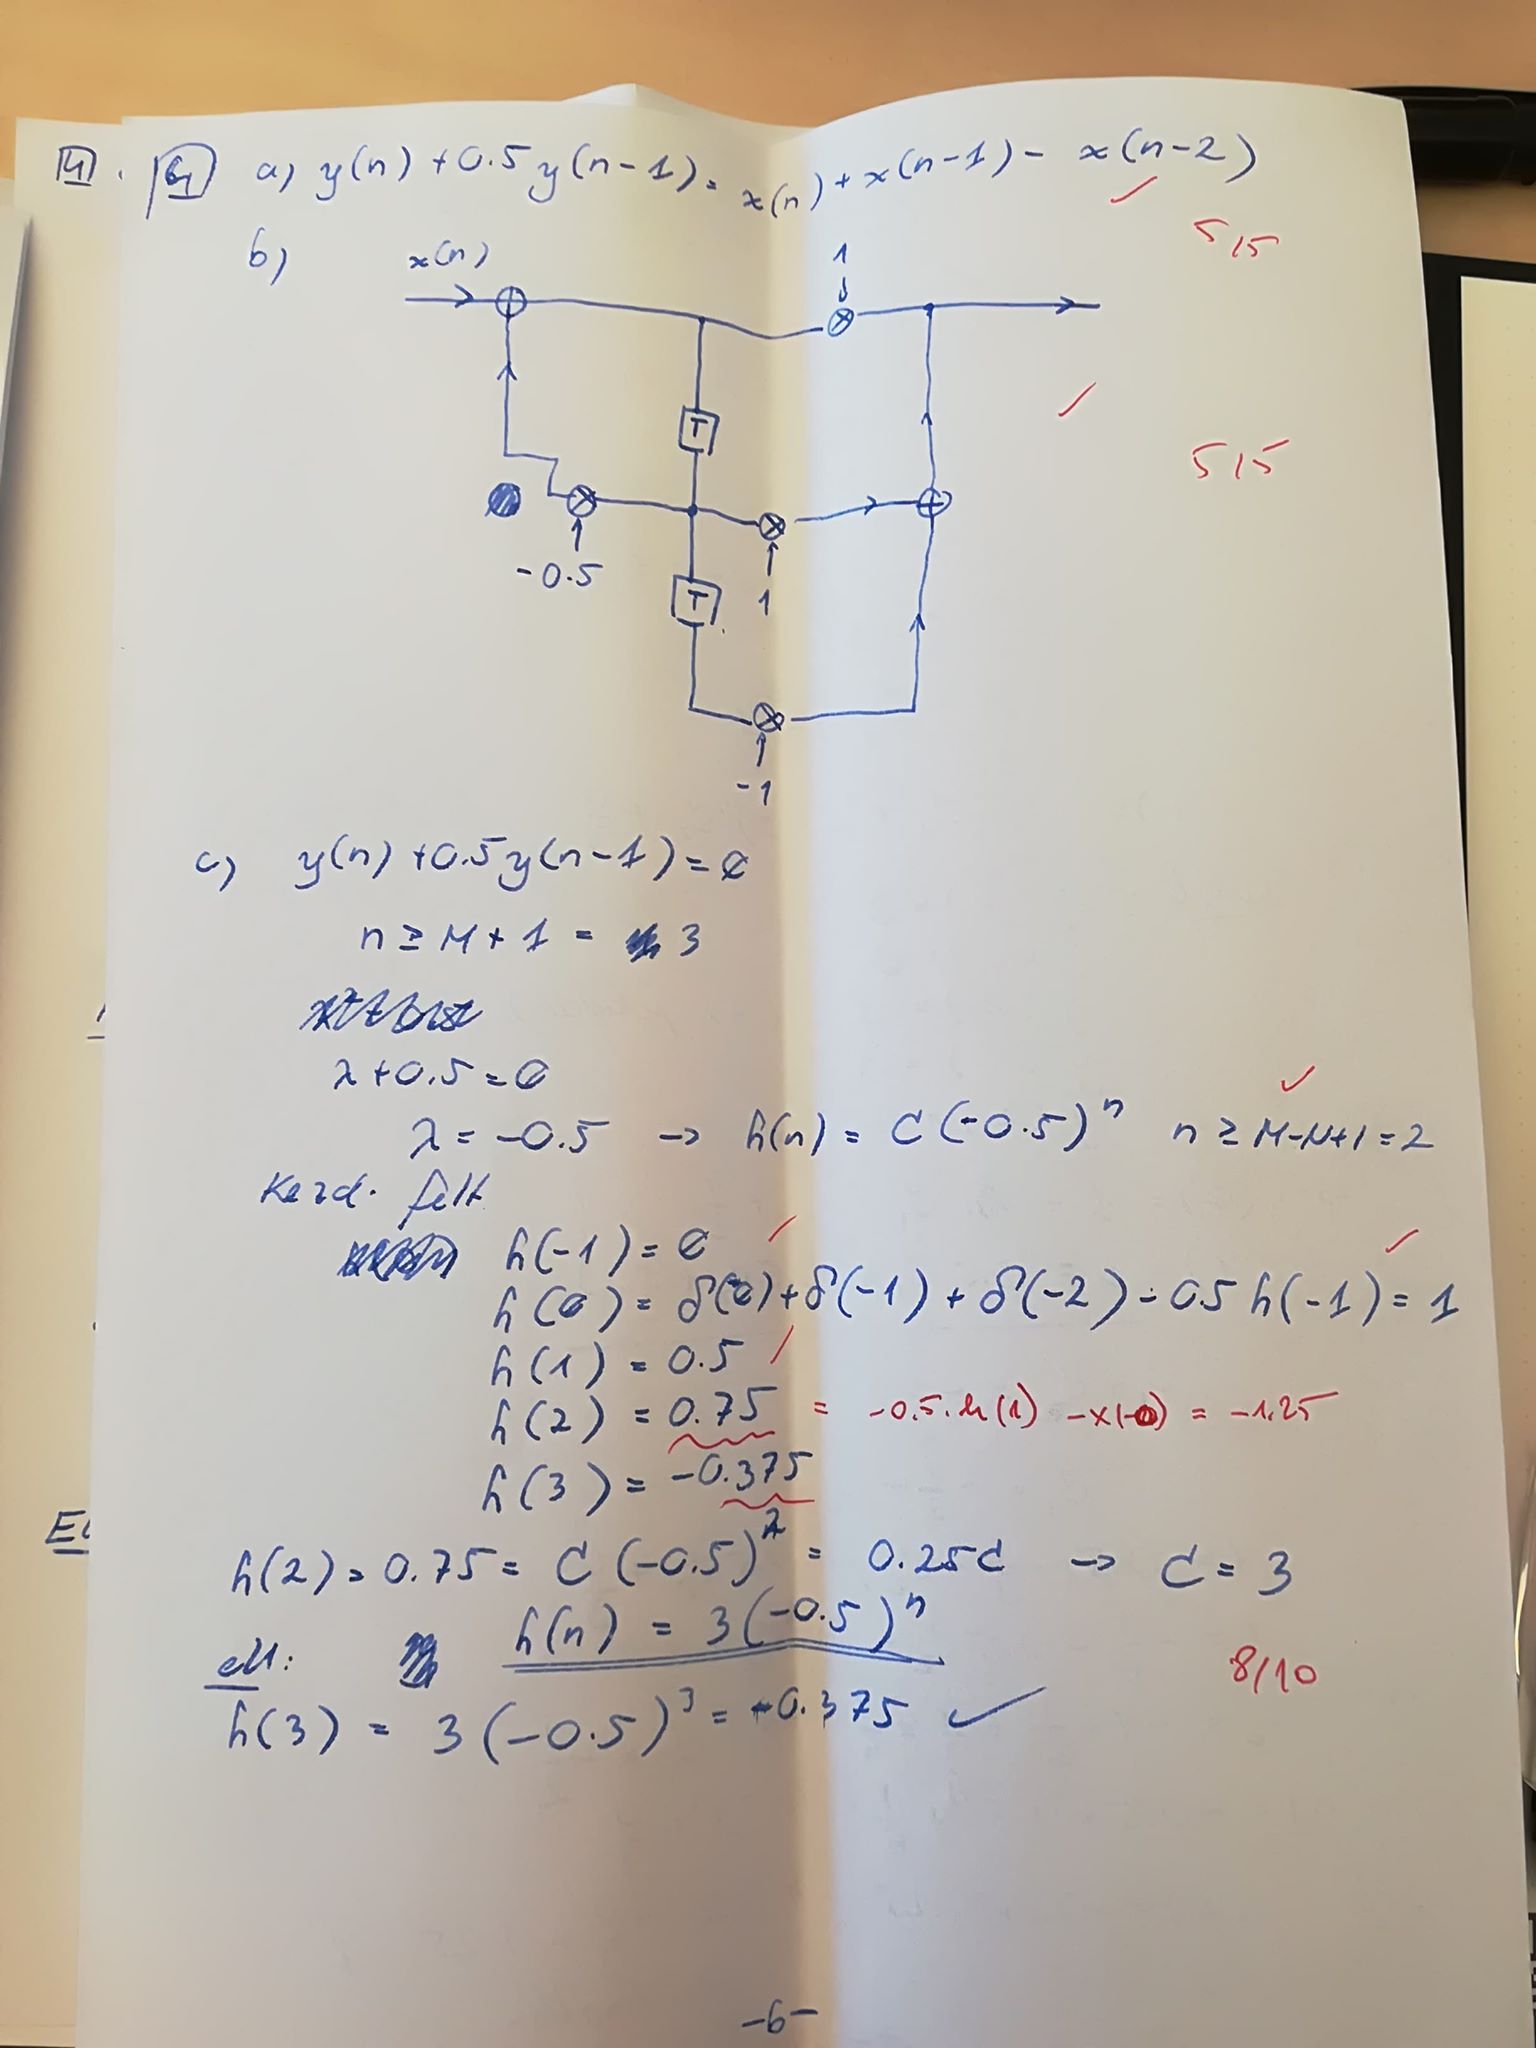 4. 4 a) y(n) + 0.5 y(n-1) = x(n) + x(n-1) - x(n-2) ✓
5/5
b) x(n)
1
✓
T
5/5
-0.5
1
T
-1
c) y(n) + 0.5 y(n-1) = 0
n ≥ M + 1 = 3
λ + 0.5 = 0
✓
λ = -0.5 → h(n) = C (-0.5)ⁿ n ≥ M-N+1 = 2
Kezd. felt.
h(-1) = 0 ✓
h(0) = δ(0) + δ(-1) + δ(-2) - 0.5 h(-1) = 1
h(1) = 0.5
h(2) = 0.75 = -0.5·h(1) - x(0) = -1.25
h(3) = -0.375
h(2) = 0.75 = C (-0.5)² = 0.25C → C = 3
h(n) = 3(-0.5)ⁿ
ell:
8/10
h(3) = 3 (-0.5)³ = -0.375 ✓
-6-